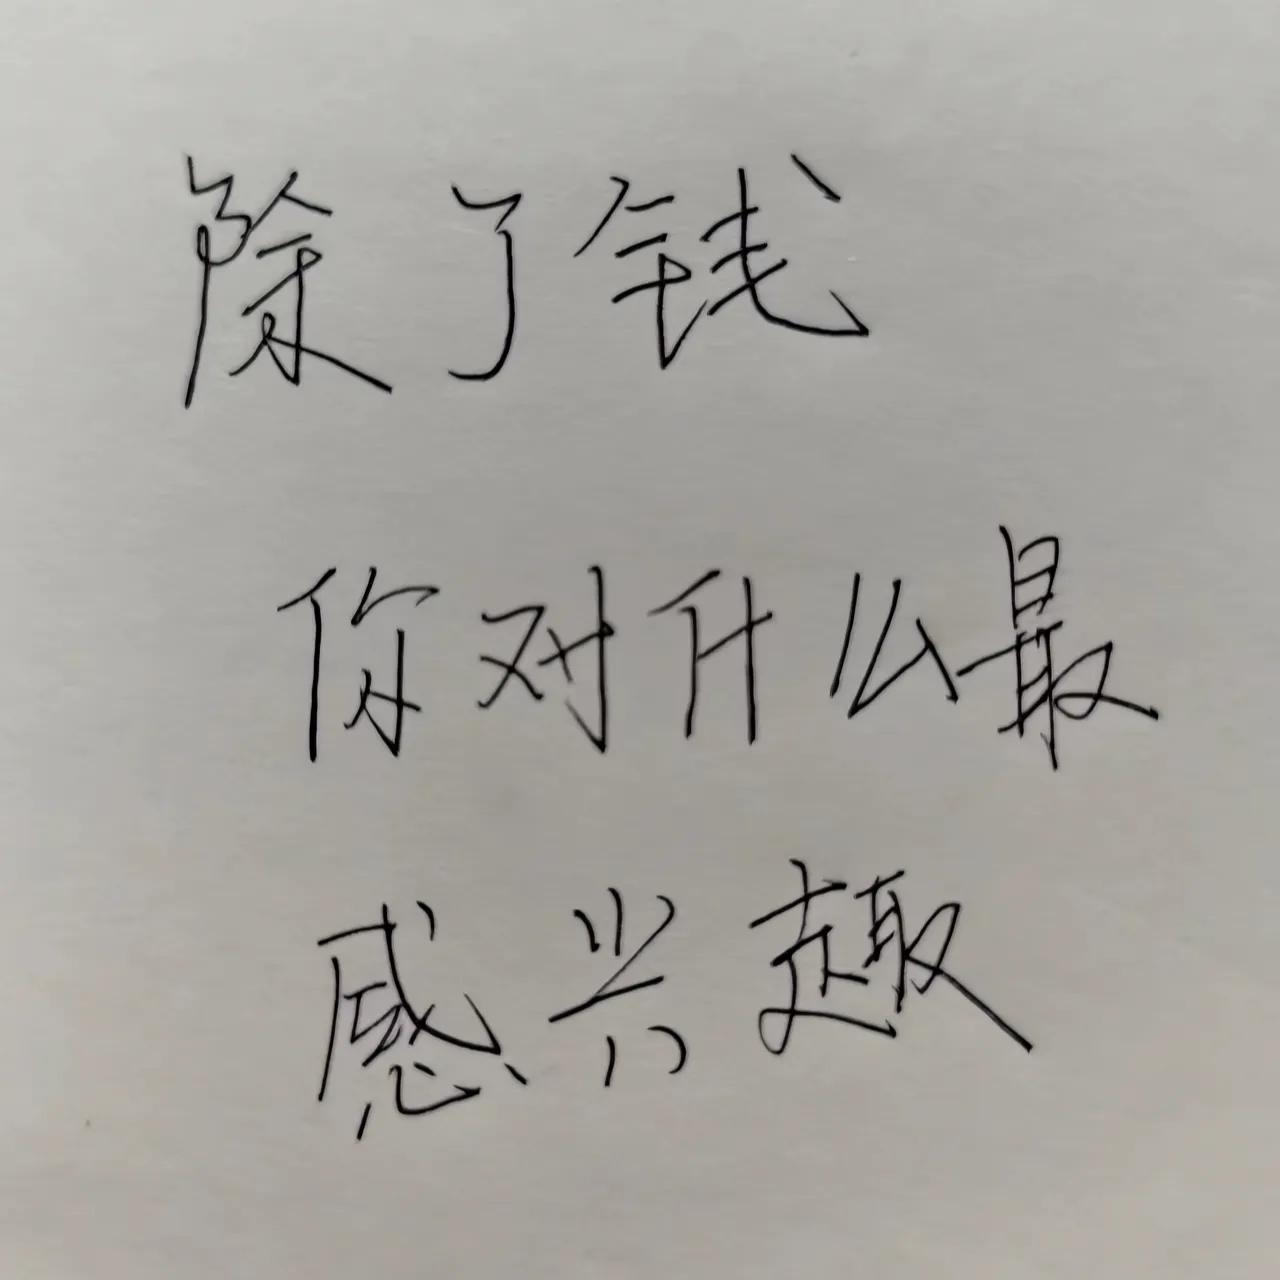 除了钱
你对什么最
感兴趣